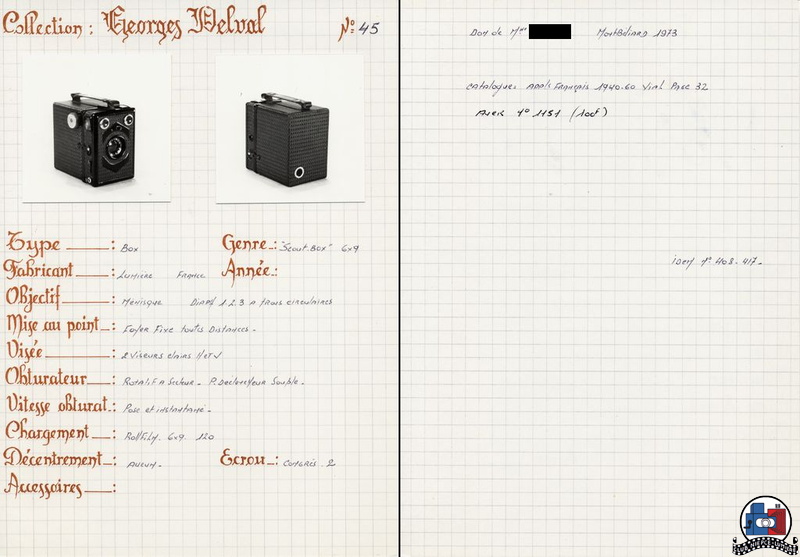 Collection : Georges Delval N° 45
Type : Box
Genre : "Scout Box" 6x9
Fabricant : Lumiere France
Année :
Objectif : Menisque Diaph 1.2.3 a trous circulaires
Mise au point : Foyer Fixe toutes Distances -
Visée : 2 Viseurs clairs H et V
Obturateur : Rotatif a Secteur - P. Declencheur Souple -
Vitesse obturat. : Pose et instantané -
Chargement : Rollfilm. 6x9 120
Décentrement : aucun -
Ecrou : Congrès. 2
Accessoires :
Don de Mme Montbéliard 1973
Catalogues Français 1940-60 Vial Page 32
N° 1151
idem N° 408 - 417 -